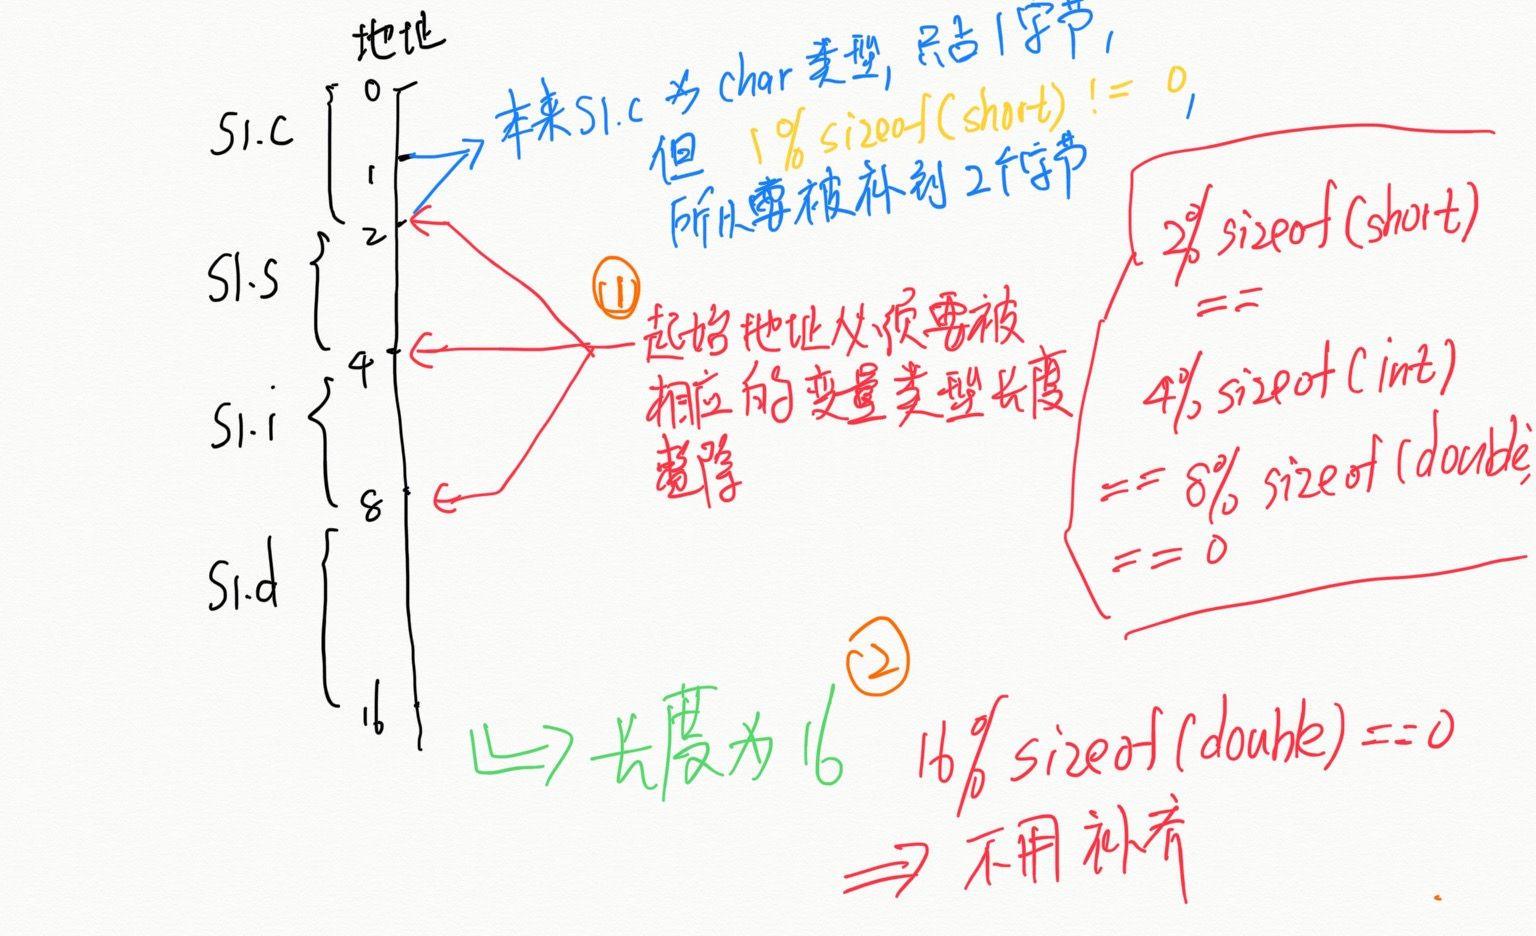 地址
0
S1.c
1
2
S1.s
4
S1.i
8
S1.d
16
本来S1.c 为 char 类型, 只占1字节,
但 1% sizeof(short) != 0,
所以要被补到 2个字节
①
起始地址必须要被
相应的变量类型长度
整除
2% sizeof(short)
==
4% sizeof(int)
== 8% sizeof(double)
== 0
长度为 16
②
16% sizeof(double) ==0
=> 不用补齐